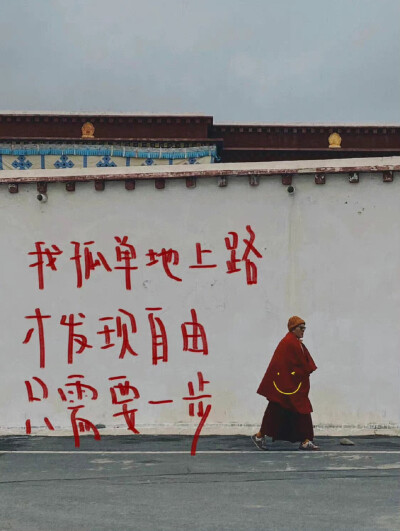 我孤单地上路
才发现自由
只需要一步